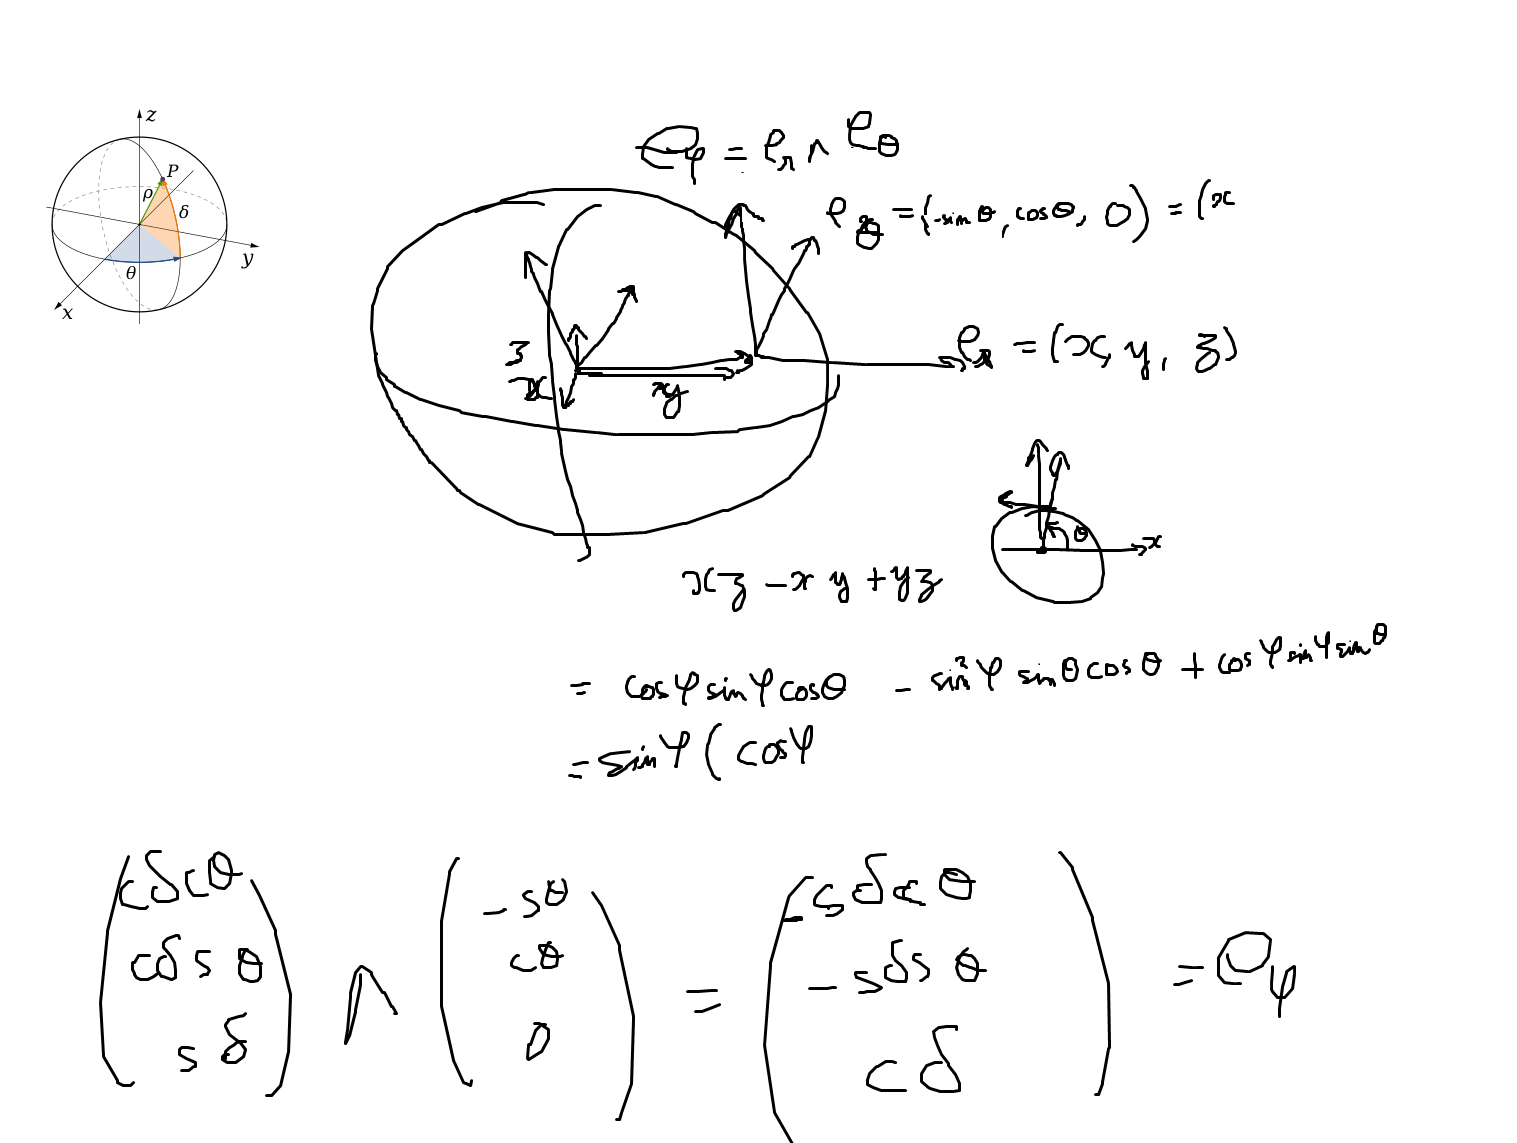 z
P
ρ
δ
θ
x
y
e_φ = e_r ∧ e_θ
e_θ = (-sin θ, cos θ, 0) = (x
e_r = (x, y, z)
z
x
xy
θ
x
xz - xy + yz
= cos φ sin φ cos θ - sin² φ sin θ cos θ + cos φ sin φ sin θ
= sin φ ( cos φ
( cδcθ ) ( -sθ ) ( -sδcθ )
( cδ s θ ) ∧ ( cθ ) = ( - sδs θ ) = e_φ
( s δ ) ( 0 ) ( cδ )